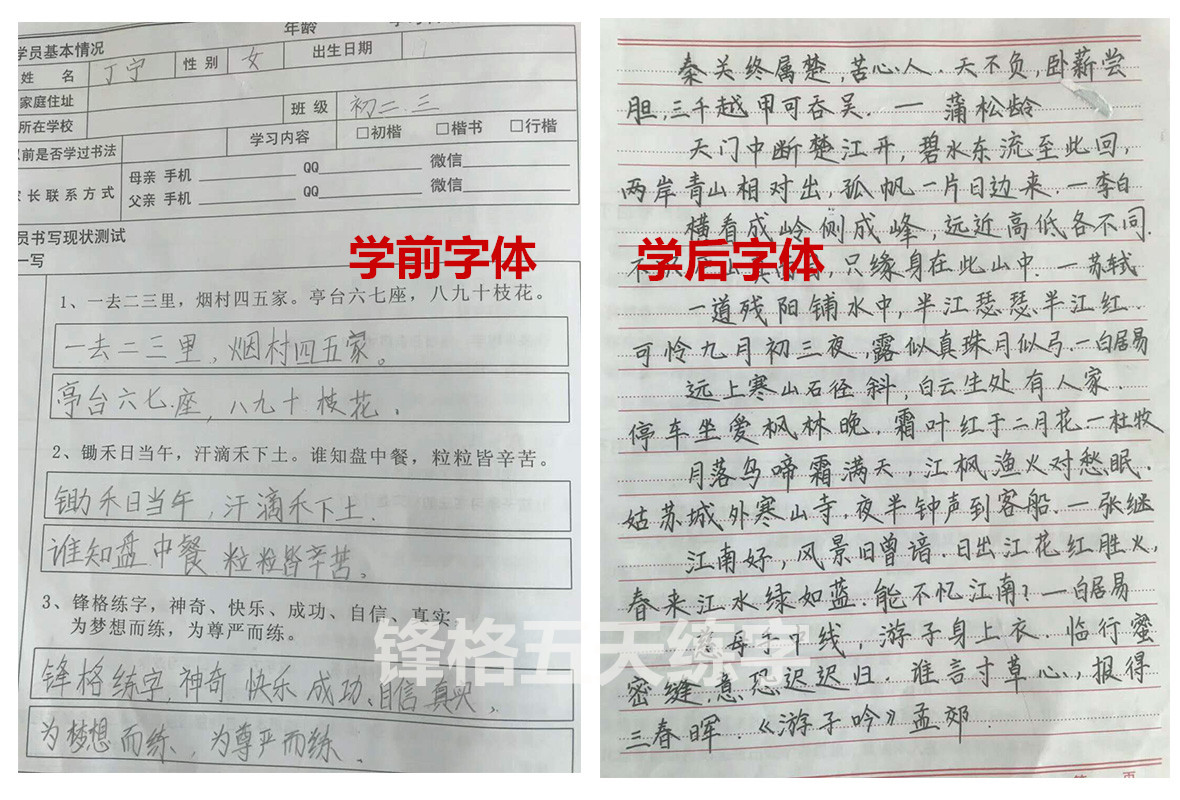 年龄
学员基本情况
姓 名 丁宁 性别 女 出生日期
家庭住址
所在学校 班级 初二.三
前是否学过书法 学习内容 □初楷 □楷书 □行楷
长联系方式 母亲 手机 QQ 微信
父亲 手机 QQ 微信
员书写现状测试
一写
学前字体
1、一去二三里，烟村四五家。亭台六七座，八九十枝花。
一去二三里，烟村四五家。
亭台六七座，八九十枝花．
2、锄禾日当午，汗滴禾下土。谁知盘中餐，粒粒皆辛苦。
锄禾日当午，汗滴禾下土．
谁知盘中餐 粒粒皆辛苦。
3、锋格练字，神奇、快乐、成功、自信、真实，
为梦想而练，为尊严而练。
锋格练字，神奇 快乐 成功、自信、真实，
为梦想而练、为尊严而练、
秦关终属楚，苦心人．天不负，卧薪尝
胆，三千越甲可吞吴．一 蒲松龄
天门中断楚江开，碧水东流至此回，
两岸青山相对出，孤帆一片日边来．一李白
横看成岭侧成峰，远近高低各不同．
学后字体
不 山 ，只缘身在此山中 一苏轼
一道残阳铺水中，半江瑟瑟半江红．
可怜九月初三夜，露似真珠月似弓．一白居易
远上寒山石径斜，白云生处有人家．
停车坐爱枫林晚．霜叶红于二月花．一杜牧
月落乌啼霜满天，江枫渔火对愁眠．
姑苏城外寒山寺．夜半钟声到客船．一张继
江南好，风景旧曾谙．日出江花红胜火，
春来江水绿如蓝．能不忆江南？一白居易
母手中线，游子身上衣．临行蜜
密缝，意恐迟迟归．谁言寸草心，报得
三春晖．《游子吟》孟郊．
锋格五天练字